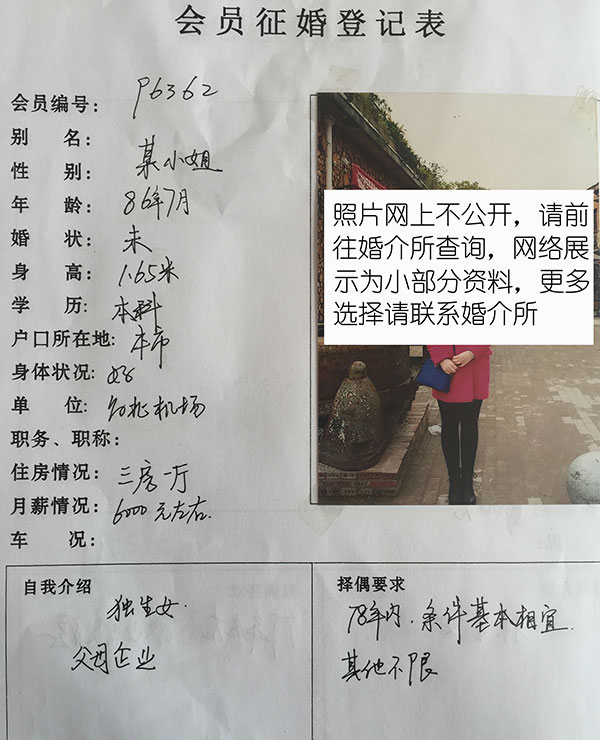 会员征婚登记表
会员编号： P6362
别 名：
性 别： 某小姐
年 龄： 86年7月
婚 状： 未
身 高： 1.65米
学 历： 本科
户口所在地: 本市
身体状况: 好
单 位: 机场
职务、职称：
住房情况： 三房一厅
月薪情况： 6000元左右.
车 况：
照片网上不公开，请前
往婚介所查询，网络展
示为小部分资料，更多
选择请联系婚介所
自我介绍
独生女.
父母企业
择偶要求
78年内.条件基本相宜.
其他不限